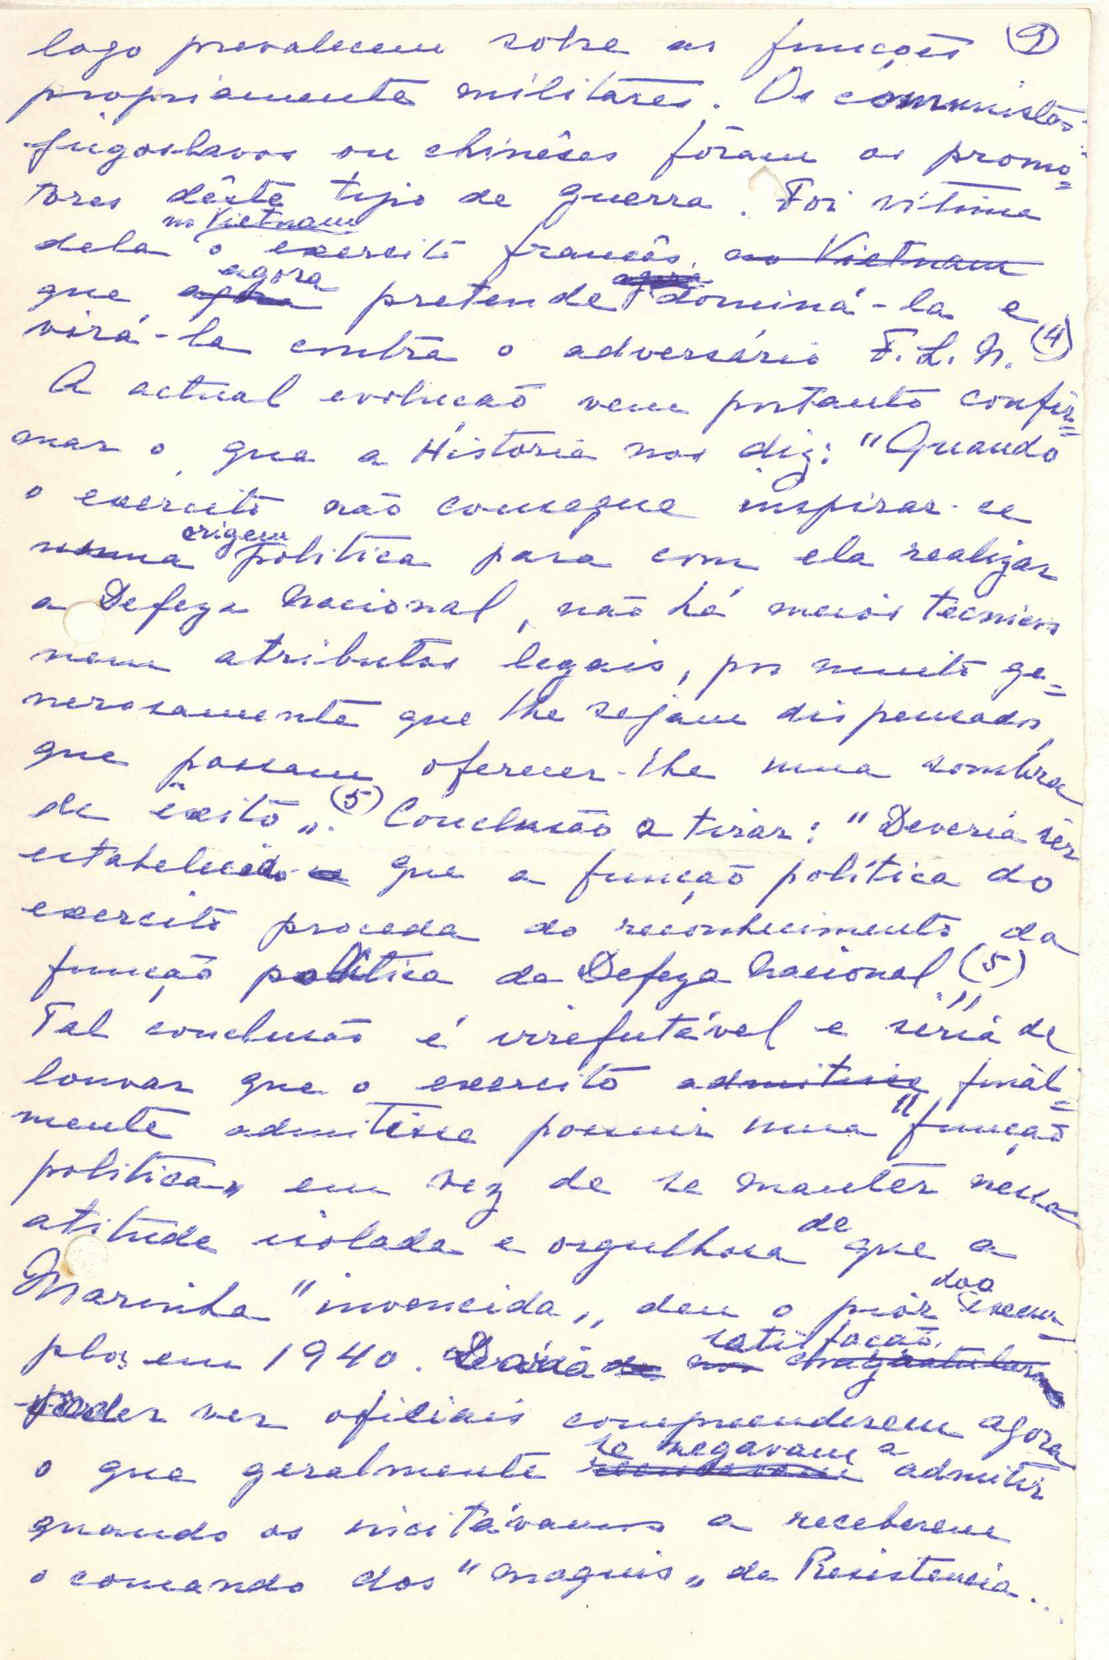 logo prevalecem sobre as funções (3)
propriamente militares. Os comunistas
jugoslavos ou chinêses fôram os promo=
tores dêste tipo de guerra. Foi vítima
dela no Vietnam o exercito francês, no Vietnam
que agora agora pretende agora dominá-la e
virá-la contra o adversário F.L.N. (4)
A actual evolução vem portanto confir=
mar o que a História nos diz: "Quando
o exército não consegue inspirar-se
numa origem politica para com ela realizar
a Defeza Nacional, não há meios tecnicos
nem atributos legais, por muito ge=
nerosamente que lhe sejam dispensados,
que possam oferecer-lhe uma sombra
de êxito". (5) Conclusão a tirar: "Deveria ser
estabelecido que a função política do
exercito proceda do reconhecimento da
função politica da Defeza Nacional." (5)
Tal conclusão é irrefutável e seria de
louvar que o exercito admitisse final=
mente admitisse possuir uma "função
politica" em vez de se manter nessa
atitude isolada e orgulhosa de que a
Marinha "invencida" deu o piór dos exem=
plos em 1940. Daria satisfação,
poder ver oficiais compreenderem agora
o que geralmente se negavam a admitir
quando os incitávamos a receberem
o comando dos "maquis" da Resistencia...